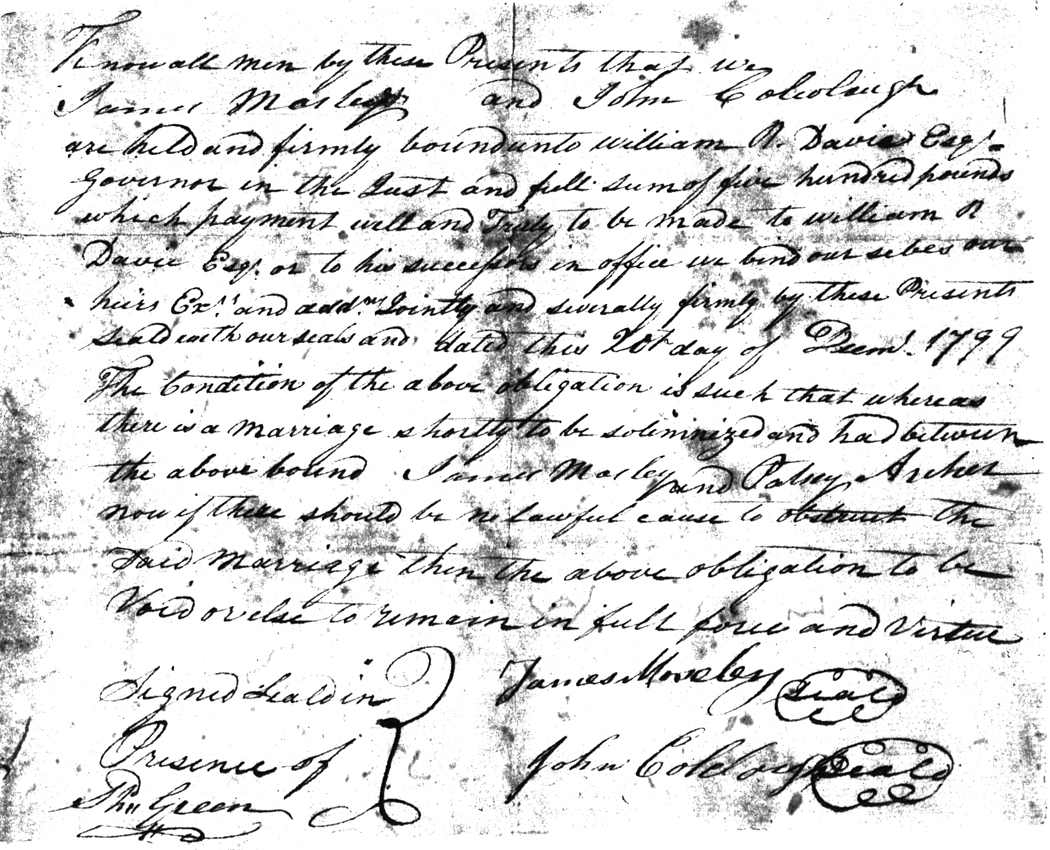 Know all men by these Presents that we
James Mosley and John Colcolough
are held and firmly bound unto william R. Davie Esqr.
Governor in the Just and full sum of five hundred pounds
which payment will and Truly to be made to william R
Davie Esqr. or to his successors in office we bind our selves our
heirs Exrs. and addmrs Jointly and severally firmly by these Presents
seald with our seals and dated this 20th day of Decmr. 1799
The Condition of the above obligation is such that whereas
there is a marriage shortly to be solimnized and had between
the above bound James Mosley and Patsey Archer
now if there should be no lawful cause to obstruct the
said marriage then the above obligation to be
Void or else to remain in full force and virtue
Signed Seald in James Moseley Seald
Presence of John Seald
Thos Green